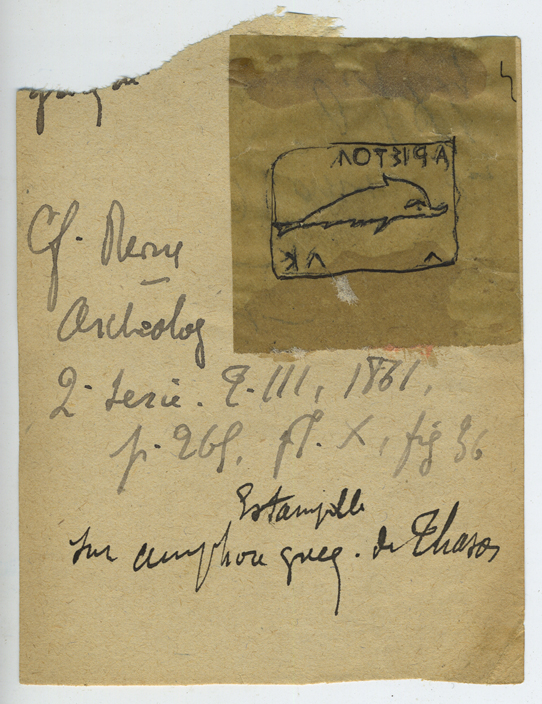 ΑΡΙΣΤΟΛ
Cf. Revue
Archéolog
2e serie. T. III, 1861,
p. 269, pl. X, fig 36
Estampille
sur amphore greq. de Thasos